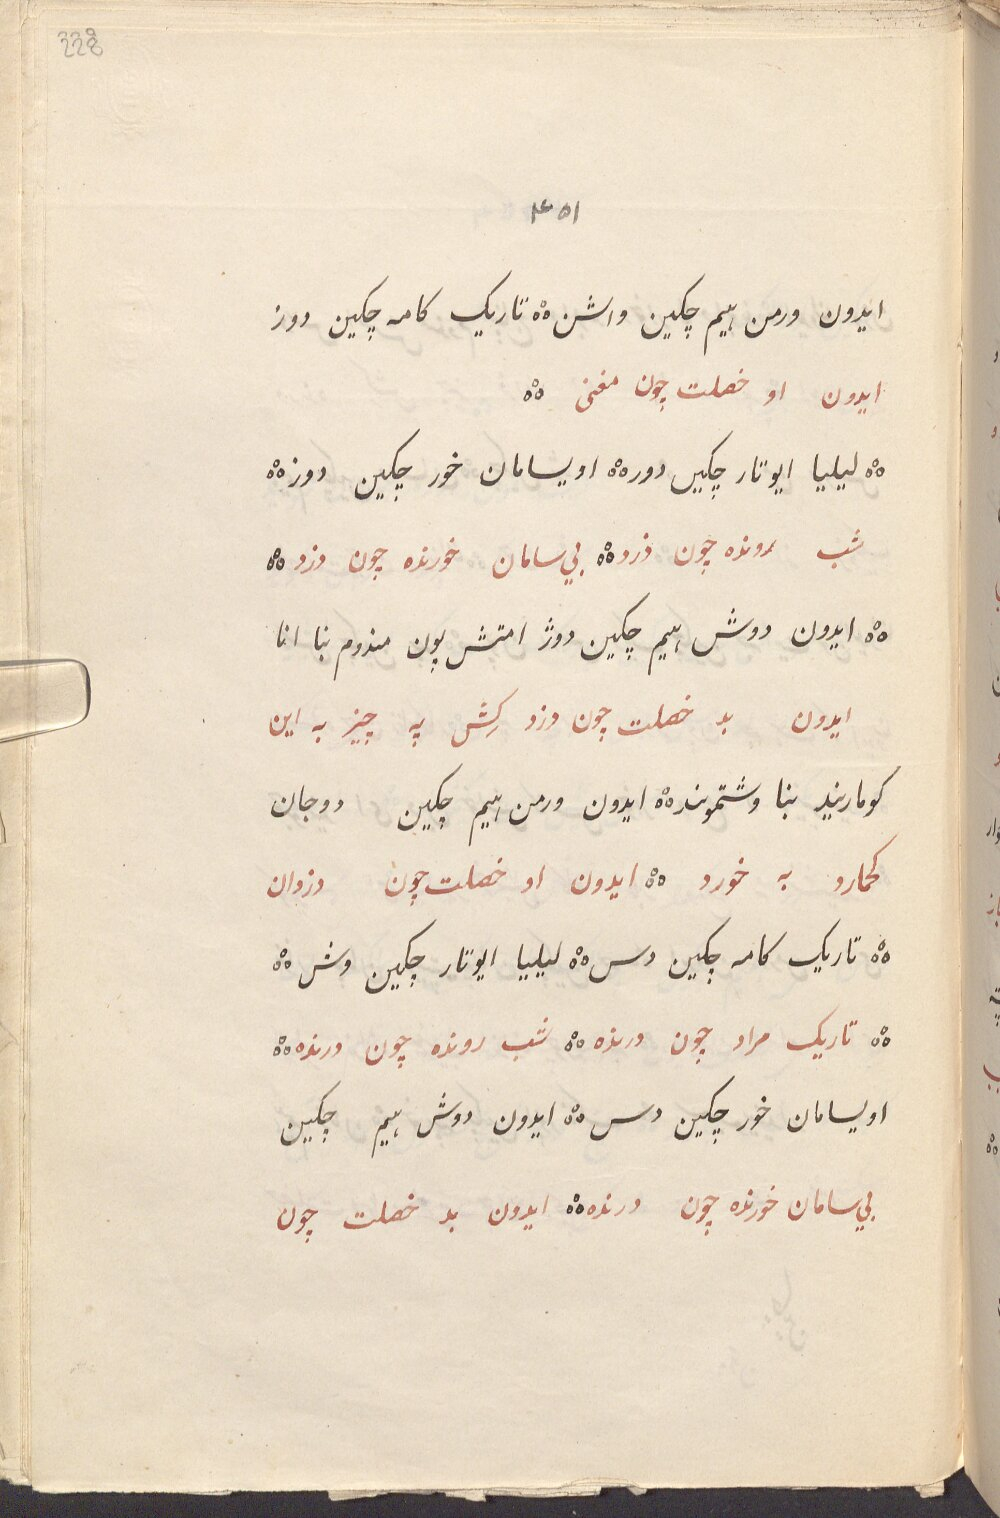 228
۴۵۱
ایدون ورمن ہیم چکین واشن ٥٥ تاریک کامہ چکین دوز
ایدون او خصلت چون مغنی ٥٥
٥٥ لیلیا ایوتار چکین دور ٥٥ اویسامان خور چکین دوز ٥٥
شب رونده چون دزد ٥٥ بی سامان خورنده چون دزد ٥٥
٥٥ ایدون دوش ہیم چکین دوژ امتش پون مندوم بنا انا
ایدون بد خصلت چون دزد کِش پہ چیز بہ این
کومارنید بنا وشتمونند ٥٥ ایدون ورمن ہیم چکین دوجان
گمارد بہ خورد ٥٥ ایدون او خصلت چون دزدان
٥٥ تاریک کامہ چکین دس ٥٥ لیلیا ایوتار چکین وش ٥٥
٥٥ تاریک مراد چون درنده ٥٥ شب رونده چون درنده ٥٥
اویسامان خور چکین دس ٥٥ ایدون دوش ہیم چکین
بی سامان خورنده چون درنده ٥٥ ایدون بد خصلت چون